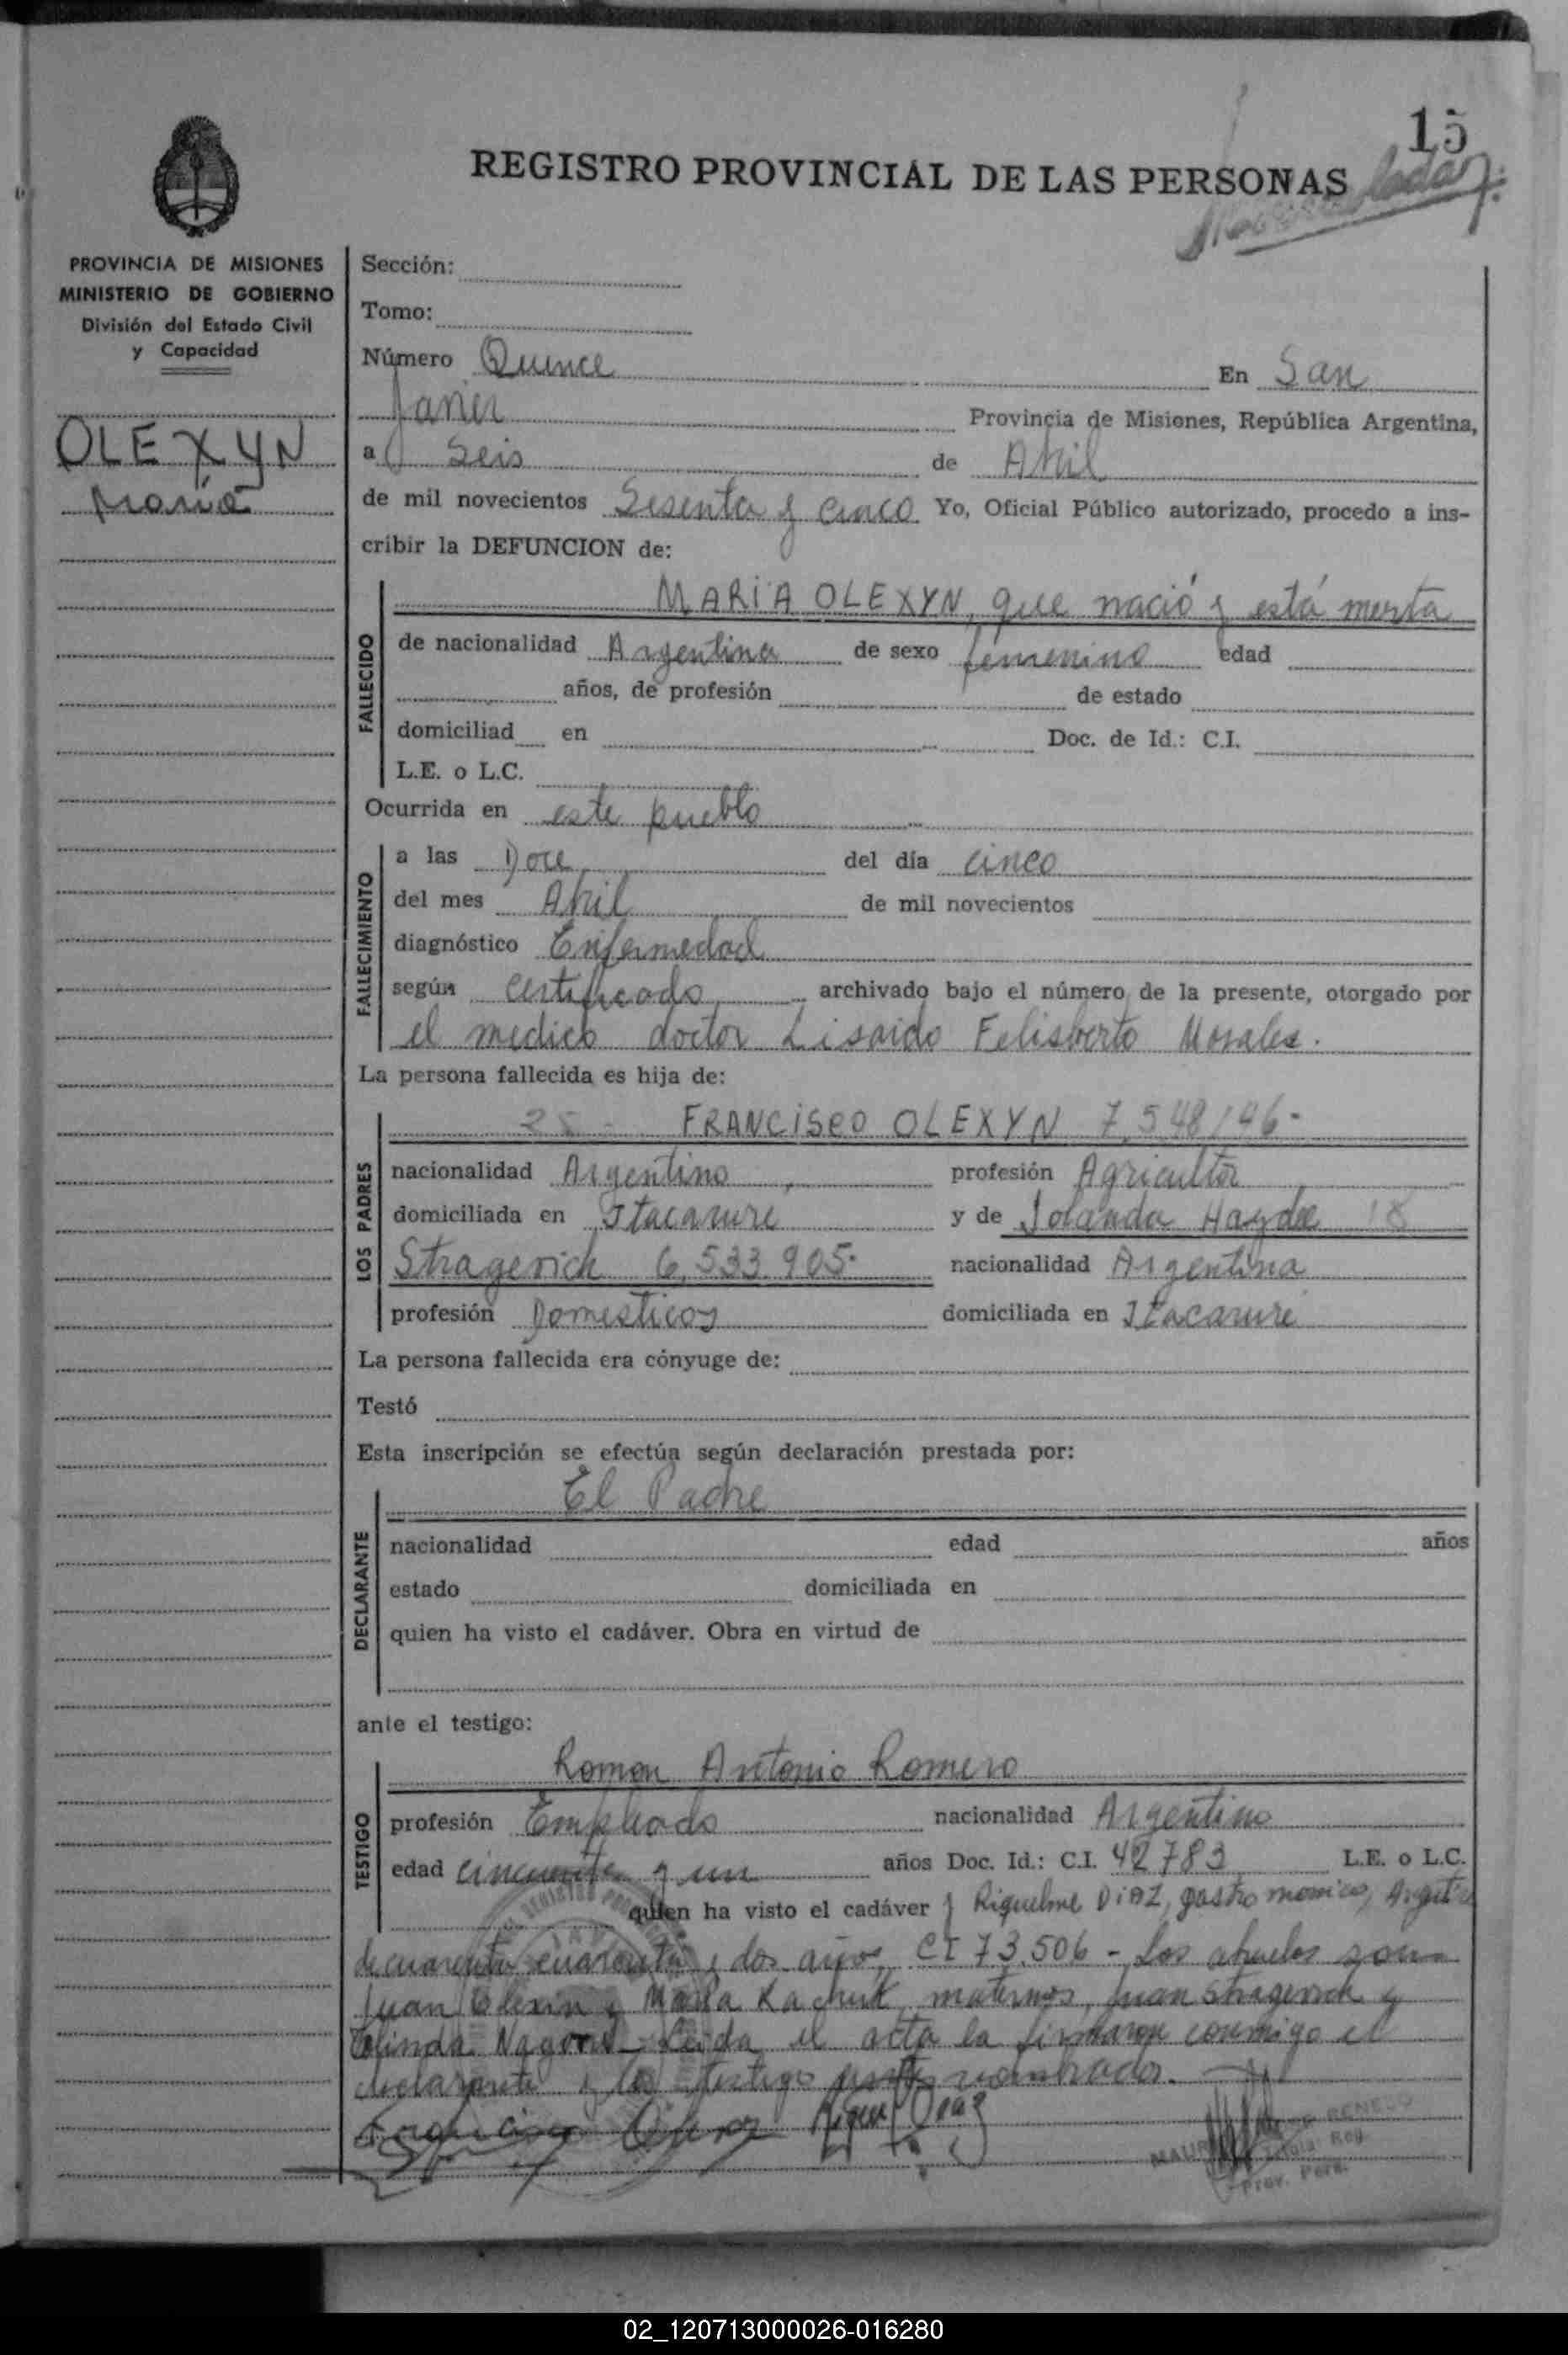 15
REGISTRO PROVINCIAL DE LAS PERSONAS
PROVINCIA DE MISIONES
MINISTERIO DE GOBIERNO
División del Estado Civil
y Capacidad
OLEXYN
María
Sección:
Tomo:
Número Quince En San
Javier Provincia de Misiones, República Argentina,
a Seis de Abril
de mil novecientos Sesenta y cinco Yo, Oficial Público autorizado, procedo a ins-
cribir la DEFUNCION de:
MARIA OLEXYN, que nació y está muerta
FALLECIDO
de nacionalidad Argentina de sexo femenino edad
años, de profesión de estado
domiciliad en Doc. de Id.: C.I.
L.E. o L.C.
Ocurrida en este pueblo
FALLECIMIENTO
a las Doce del día cinco
del mes Abril de mil novecientos
diagnóstico Enfermedad
según certificado archivado bajo el número de la presente, otorgado por
el medico doctor Lisaido Felisberto Morales.
La persona fallecida es hija de:
LOS PADRES
25 - FRANCISCO OLEXYN 7.548.146-
nacionalidad Argentino profesión Agricultor
domiciliada en Itacaruré y de Iolanda Haydee 18
Stragevich 6.533.905- nacionalidad Argentina
profesión Domesticos domiciliada en Itacaruré
La persona fallecida era cónyuge de:
Testó
Esta inscripción se efectúa según declaración prestada por:
El Padre
DECLARANTE
nacionalidad edad años
estado domiciliada en
quien ha visto el cadáver. Obra en virtud de
ante el testigo:
Roman Antonio Romero
TESTIGO
profesión Empleado nacionalidad Argentino
edad cincuenta y un años Doc. Id.: C.I. 42783 L.E. o L.C.
quien ha visto el cadáver y Riquelme DIAZ, gastronomico,
de cuarenta cuarenta y dos años, CI 73.506 - Los abuelos son
Juan Olexin y María Kachuk, maternos, Juan Stragevich y
Leida el acta la firmaron conmigo el
declarante y los testigo nombrados.
02_120713000026-016280